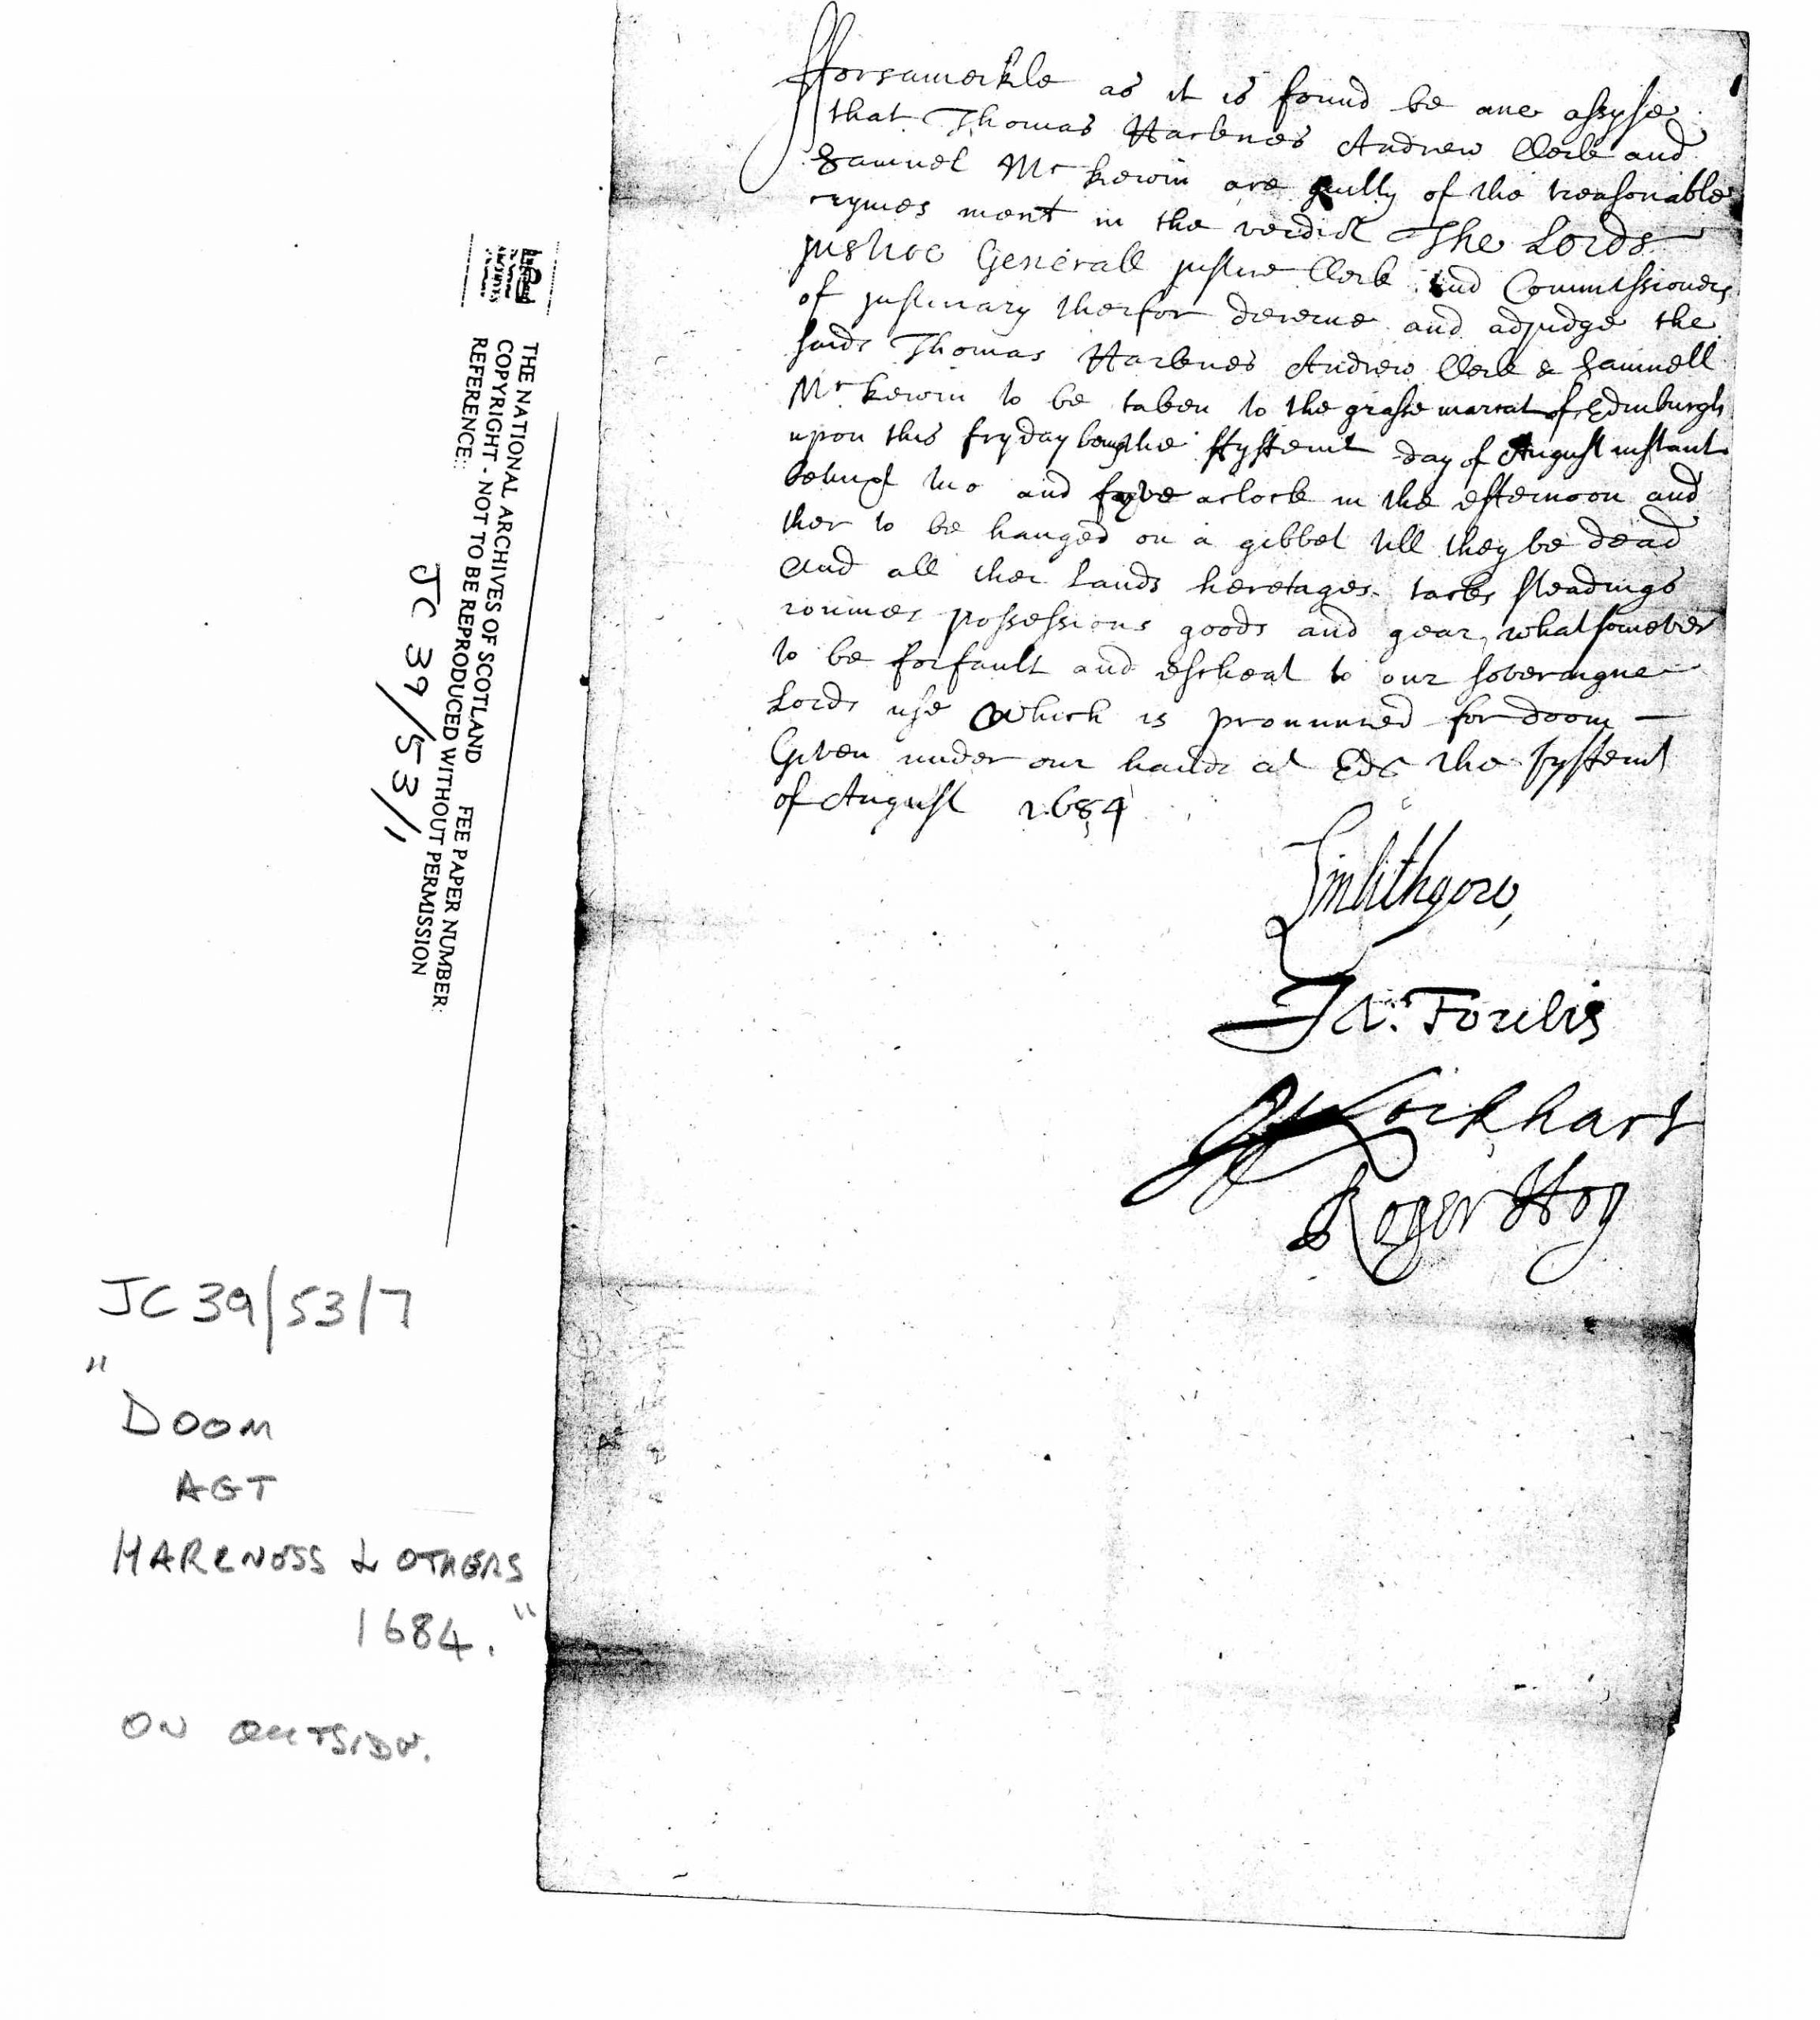 fforsameikle as it is found be ane assyse
that Thomas Harknes Andrew Clerk and
Samuel Mc kewin are guilty of the treasonable
crymes ment in the verdict The Lords
justice Generall justice Clerk and Commissioners
of justiciary therfor decerne and adjudge the
saids Thomas Harknes Andrew Clerk & Samuell
Mc kewin to be taken to the grasse mercat of Edinburgh
upon this fryday being the fyfteint day of August instant
betuixt two and fyve aclock in the efternoon and
ther to be hanged on a gibbet till they be dead
and all ther Lands heretages tacks steadings
roumes possessions goods and gear whatsomever
to be forfault and escheat to our soveraigne
Lords use Which is pronunced for doom
Given under our hands at Edr the fyfteint
of August 1684
Linlithgow
Ja: Foulis
Lockhart
Roger Hog
THE NATIONAL ARCHIVES OF SCOTLAND FEE PAPER NUMBER:
COPYRIGHT - NOT TO BE REPRODUCED WITHOUT PERMISSION
REFERENCE::
JC 39/53/1
JC 39/53/7
"
DOOM
AGT
HARCNESS & OTHERS
1684."
ON OUTSIDE.